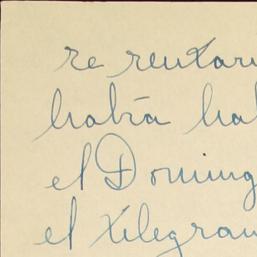 re rentar
había ha
el Doming
el telegram